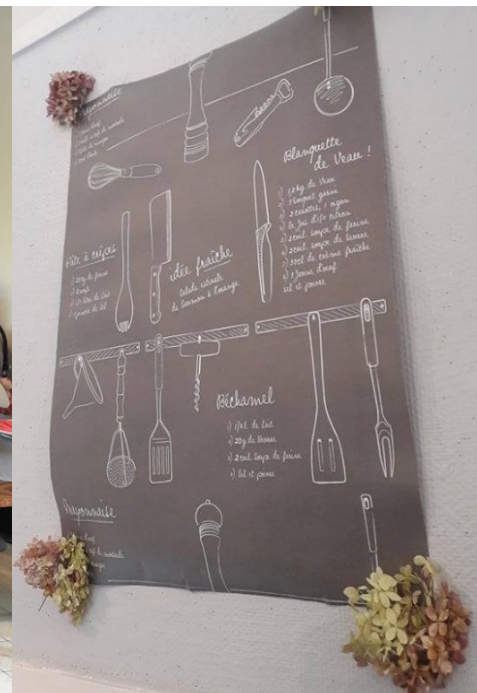 Mayonnaise
Blanquette
de Veau !
1,2 kg de Veau
1 bouquet garni
2 carottes, 1 oignon
le jus d'1/2 citron
2 cuil. soupe de farine
2 cuil. soupe de beurre
20cl de crème fraîche
1 jaune d'oeuf
Sel et poivre
Pâte à crêpes
250g de farine
4 oeufs
1/2 litre de lait
1 pincée de sel
idée fraîche
Salade estivale
de Saumon à l'orange
Béchamel
1/4 l de lait
20g de beurre
2 cuil. soupe de farine
Sel et poivre
Mayonnaise